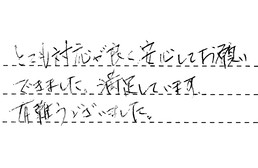 とても対応が良く安心してお願い
できました。満足しています。
有難うございました。